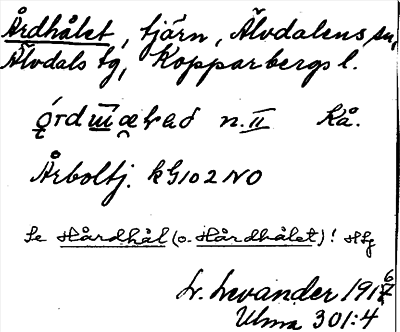 Årdhålet, tjärn, Älvdalens sn,
Älvdals tg, Kopparbergs l.
n. II Kå.
Årboltj. kG102NO
Se Hårdhål (o. Hårdhålet)! HSg
L. Levander 191
Ulma 301:4